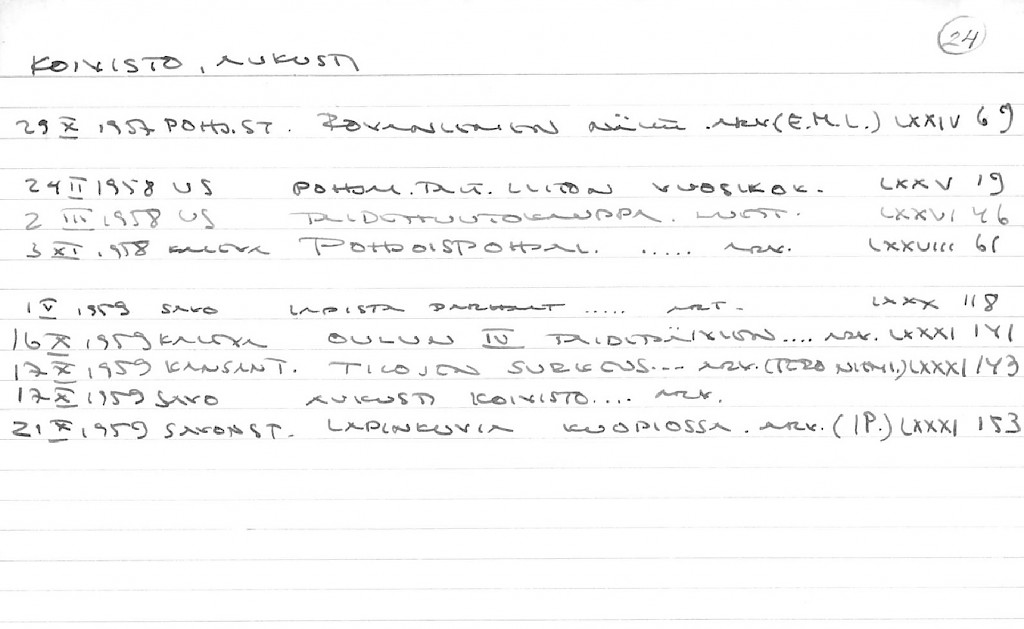 24
KOIVISTO, AUKUSTI
29 X 1957 POHJ.ST. ROVANIEMEN ARV. (E.M.L.) LXXIV 69
24 II 1958 US POHJAL. TAIT. LIITON VUOSIKOK. LXXV 19
2 III 1958 US TAIDEHUUTOKAUPPA. LUETT. LXXVI 46
3 XI 1958 KALEVA POHJOISPOHJAL. ..... ARV. LXXVIII 61
1 V 1959 SAVO LAPISTA PARHAAT ..... ART. LXXX 118
16 X 1959 KALEVA OULUN IV TAIDENÄYTTELYN.... ARV. LXXXI 141
17 X 1959 KANSANT. TILOJEN SURKEUS... ARV. (TERO NIEMI.) LXXXI 143
17 X 1959 SAVO AUKUSTI KOIVISTO.... ARV.
21 X 1959 SAVON ST. LAPINKUVIA KUOPIOSSA. ARV. (IP.) LXXXI 153